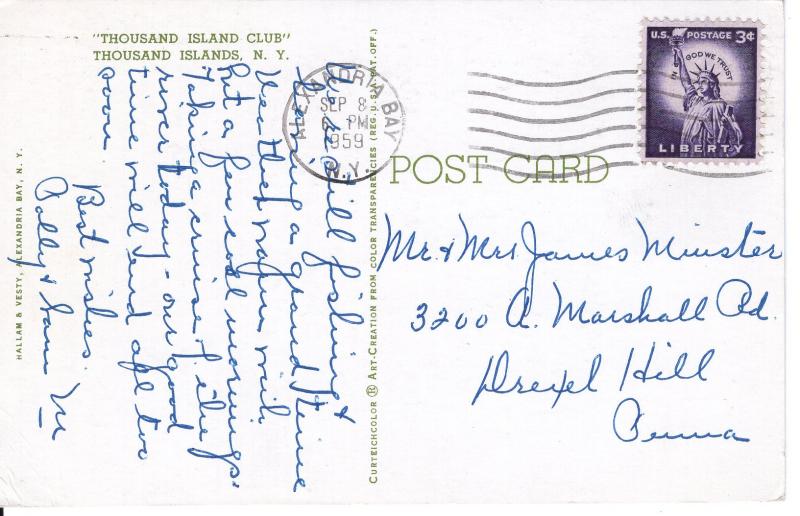 "THOUSAND ISLAND CLUB"
THOUSAND ISLANDS, N. Y.
We're still fishing &
having a grand time
Weather warm with
but a few cool mornings.
Taking a cruise of the
river today - our good
time will end all too
soon.
Best wishes.
Sam
HALLAM & VESTY, ALEXANDRIA BAY, N. Y.
CURTEICHCOLOR ® ART-CREATION FROM COLOR TRANSPARENCIES (REG. U.S.A. PAT. OFF.)
ALEXANDRIA BAY
SEP 8
6 PM
1959
N.Y.
U.S. POSTAGE 3¢
IN GOD WE TRUST
LIBERTY
POST CARD
Mr. & Mrs James Minster
3200 A. Marshall Rd.
Drexel Hill
Penna